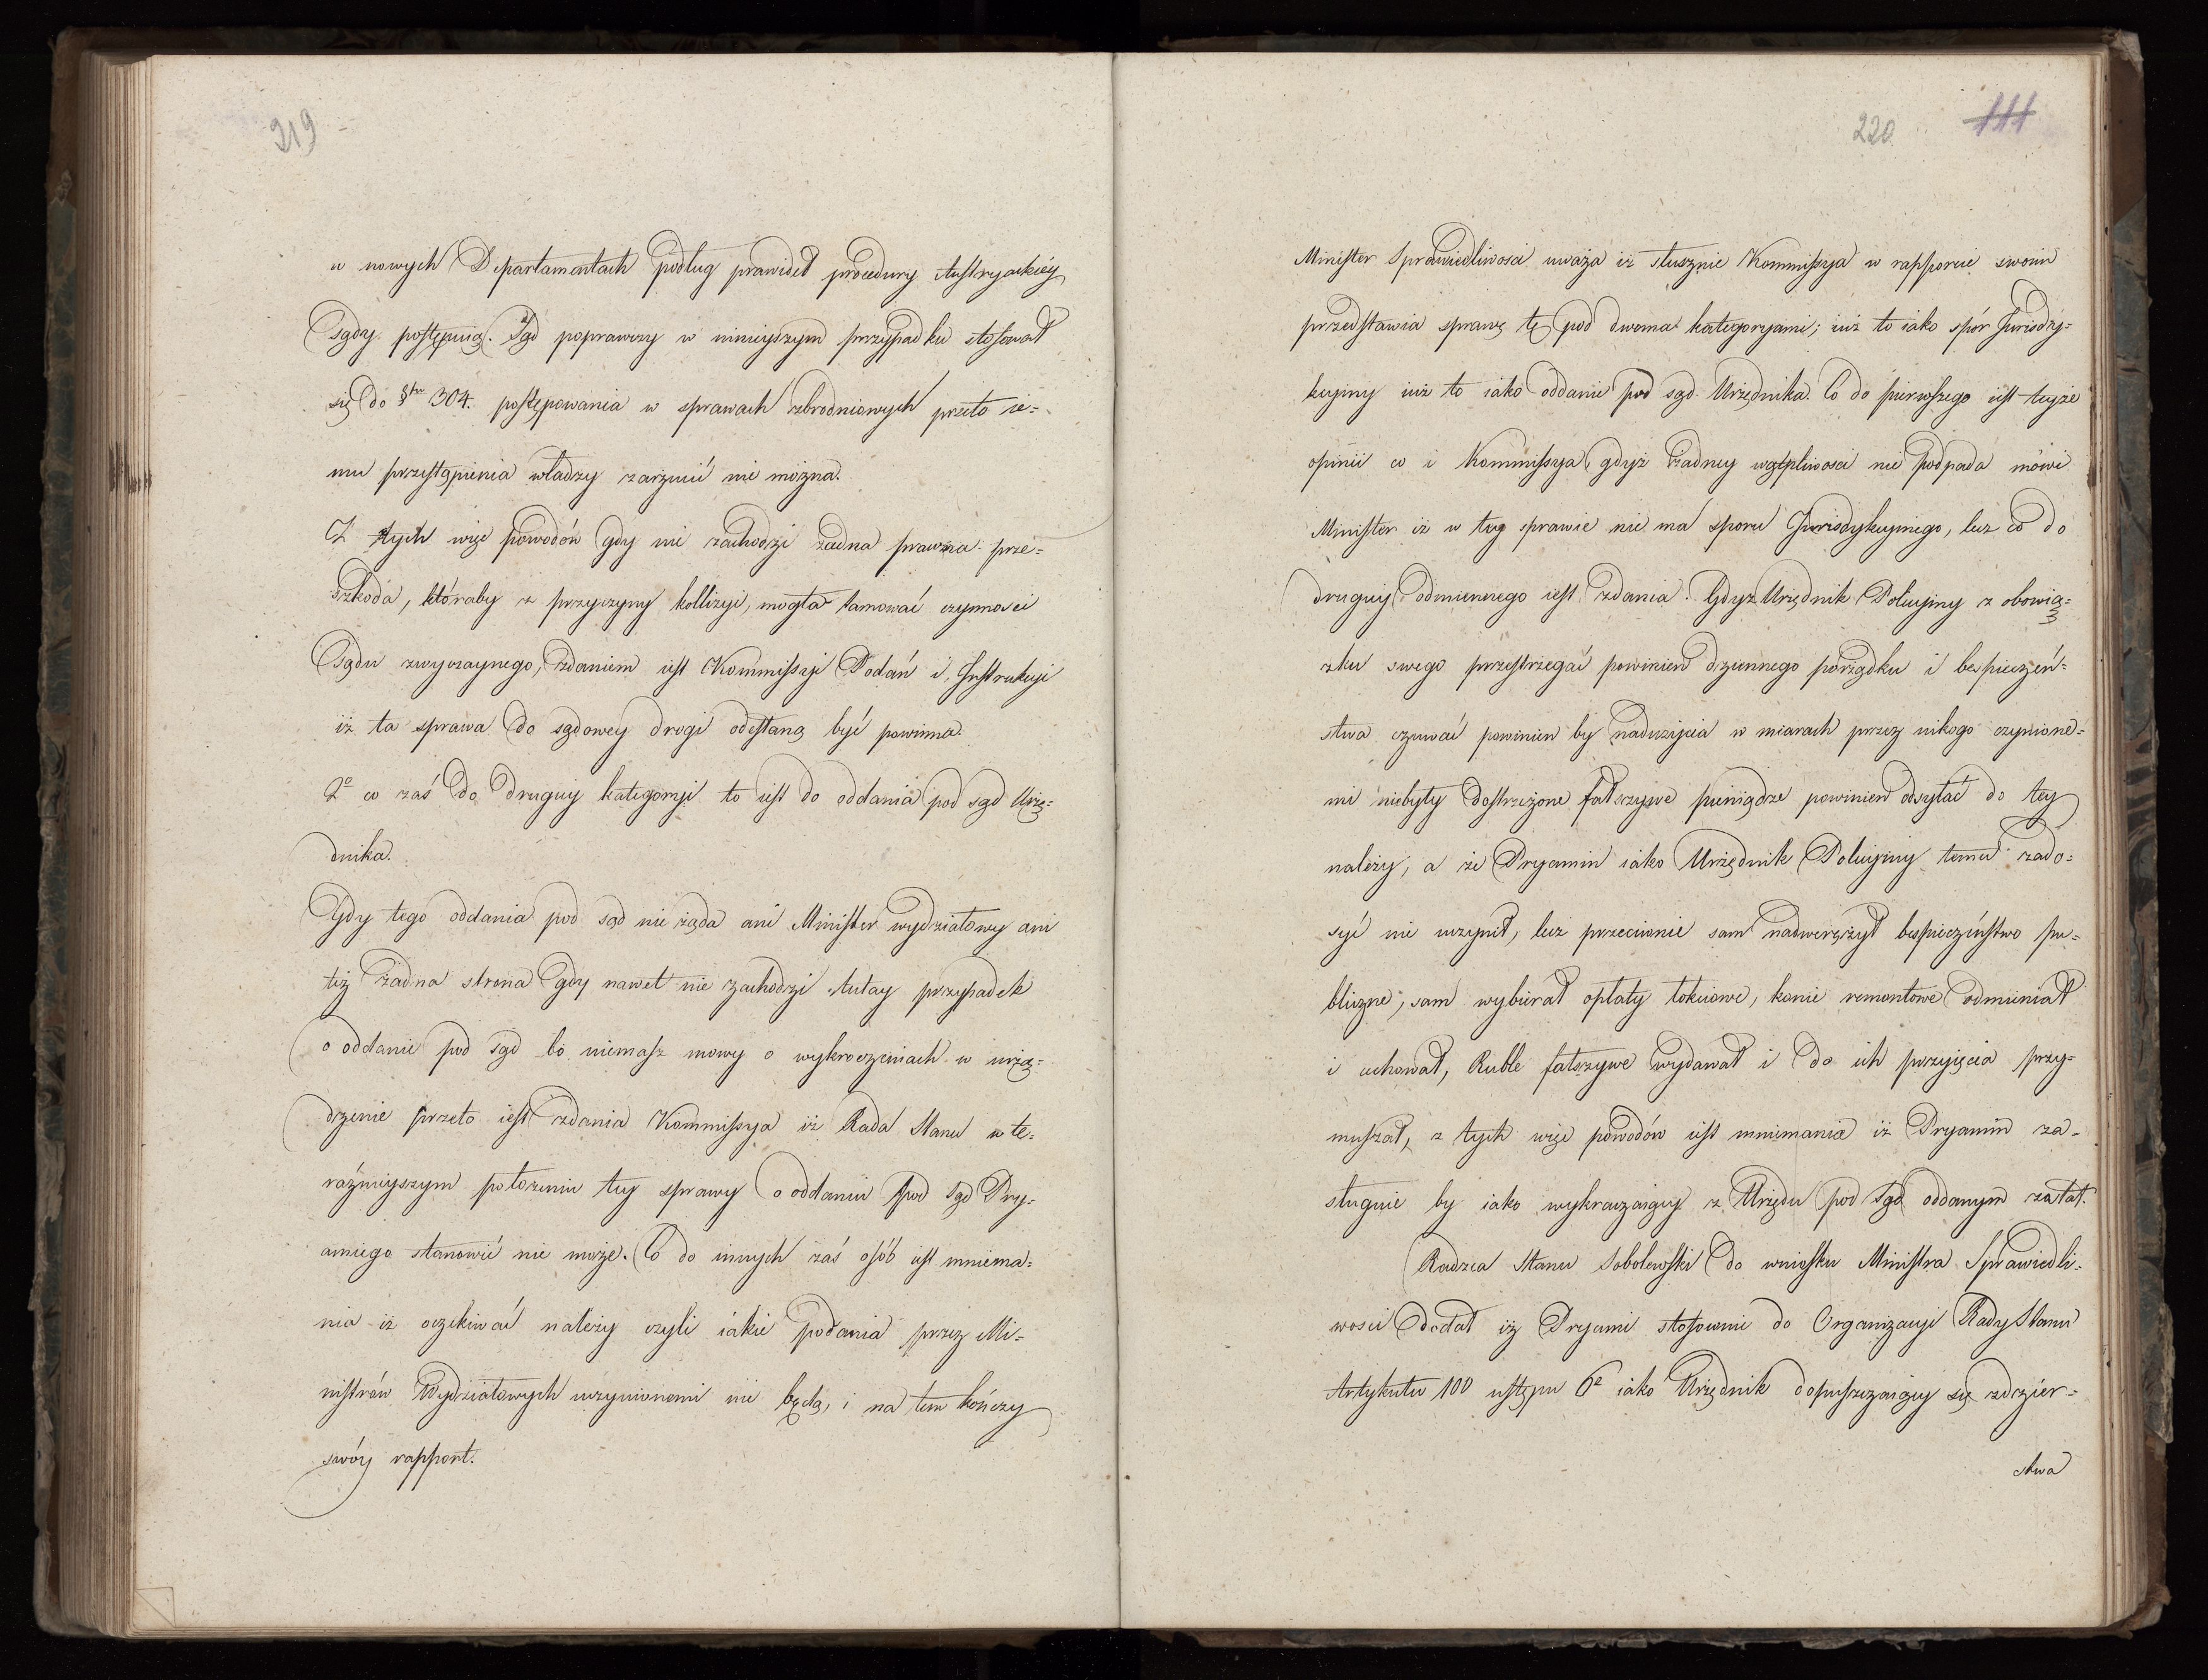 219
w nowych Departamentach podług prawideł procedury Austryackiéy
Sądy postępuią. Sąd poprawczy w ninieyszym przypadku stosował
się do §fu 304. postępowania w sprawach zbrodniowych przeto ie=
mu przestąpienia władzy zarzucić nie można.
Z tych więc powodów gdy nie zachodzi żadna prawna prze=
szkoda, któraby z przyczyny kollizyi, mogła tamować czynności
Sądu zwyczaynego, zdaniem iest Kommissyi Podań i Instrukcyi
iż ta sprawa do sądowey drogi odesłaną być powinna.
2o co zaś do drugiey kategoryi to iest do oddania pod sąd Urzę=
dnika.
Gdy tego oddania pod sąd nie żąda ani Minister wydziałowy ani
też żadna strona gdy nawet nie zachodzi tutay przypadek
o oddanie pod sąd bo niemasz mowy o wykroczeniach w urzą=
dzenie przeto iest zdania Kommissya iż Rada Stanu w te=
raźnieyszym położeniu tey sprawy o oddaniu pod sąd Dry=
amiego stanowić nie może. Co do innych zaś osób iest mniema=
nia iż oczekiwać należy czyli iakie podania przez Mi=
nistrów Wydziałowych uczynionemi nie będą, i na tem kończy
swóy rapport.
220
111
Minister Sprawiedliwości uważa iż słusznie Kommissya w rapporcie swoim
przedstawia sprawę tę pod dwoma kategoryami; iuż to iako spór Jurisdy=
kcyiny iuż to iako oddanie pod sąd Urzędnika. Co do pierwszego iest teyże
opinii co i Kommissya, gdyż żadney wątpliwości nie podpada mówi
Minister iż w tey sprawie nie ma sporu Jurisdykcyinego, lecz co do
drugiey odmiennego iest zdania. Gdyż Urzędnik Policyiny z obowią=
zku swego przestrzegać powinien dziennego porządku i bespieczeń=
stwa czuwać powinien by nadużycia w miarach przez nikogo czynione=
mi niebyły dostrzeżone fałszywe pieniądze powinien odsyłać do tey
należy, a że Dryamin iako Urzędnik Policyiny temu zado=
syć nie uczynił, lecz przeciwnie sam nadwerężył bespieczeństwo pu=
bliczne, sam wybierał opłaty tokciowe, konie remontowe odmieniał
i uchował, Ruble fałszywe wydawał i do ich przyięcia przy=
muszał, z tych więc powodów iest mniemania iż Dryamin za=
sługuie by iako wykraczaiący z Urzędu pod Sąd oddanym został.
Radzca Stanu Sobolewski do wniosku Ministra Sprawiedli=
wości dodał iż Dryami stosownie do Organizacyi Rady Stanu
Artykułu 100 ustępu 6o iako Urzędnik dopuszczaiący się zdzier=
stwa